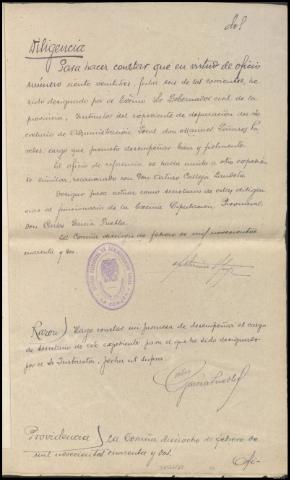 Diligencia
Para hacer constar que en virtud de oficio
número ciento veintitres, fecha seis de los corrientes, he
sido designado por el Excmo. Sr. Gobernador civil de la
provincia, Instructor del expediente de depuración del
de Administración local don Manuel
cargo que prometo desempeñar bien y fielmente.
El oficio de referencia se halla unido a otro expedien
te similar, relacionado con Don Arturo Calleja
Designo para actuar como secretario de estas diligen
cias al funcionario de la Excma. Diputación Provincial
Don Carlos García Puebla.
La Coruña dieciseis de febrero de mil novecientos
cuarenta y dos.
Razon) Hago constar mi promesa de desempeñar el cargo
de secretario de este expediente para el que he sido designado
por el Sr. Instructor, fecha ut supra.
Carlos
García Puebla
Providencia) La Coruña dieciocho de febrero de
mil novecientos cuarenta y dos.